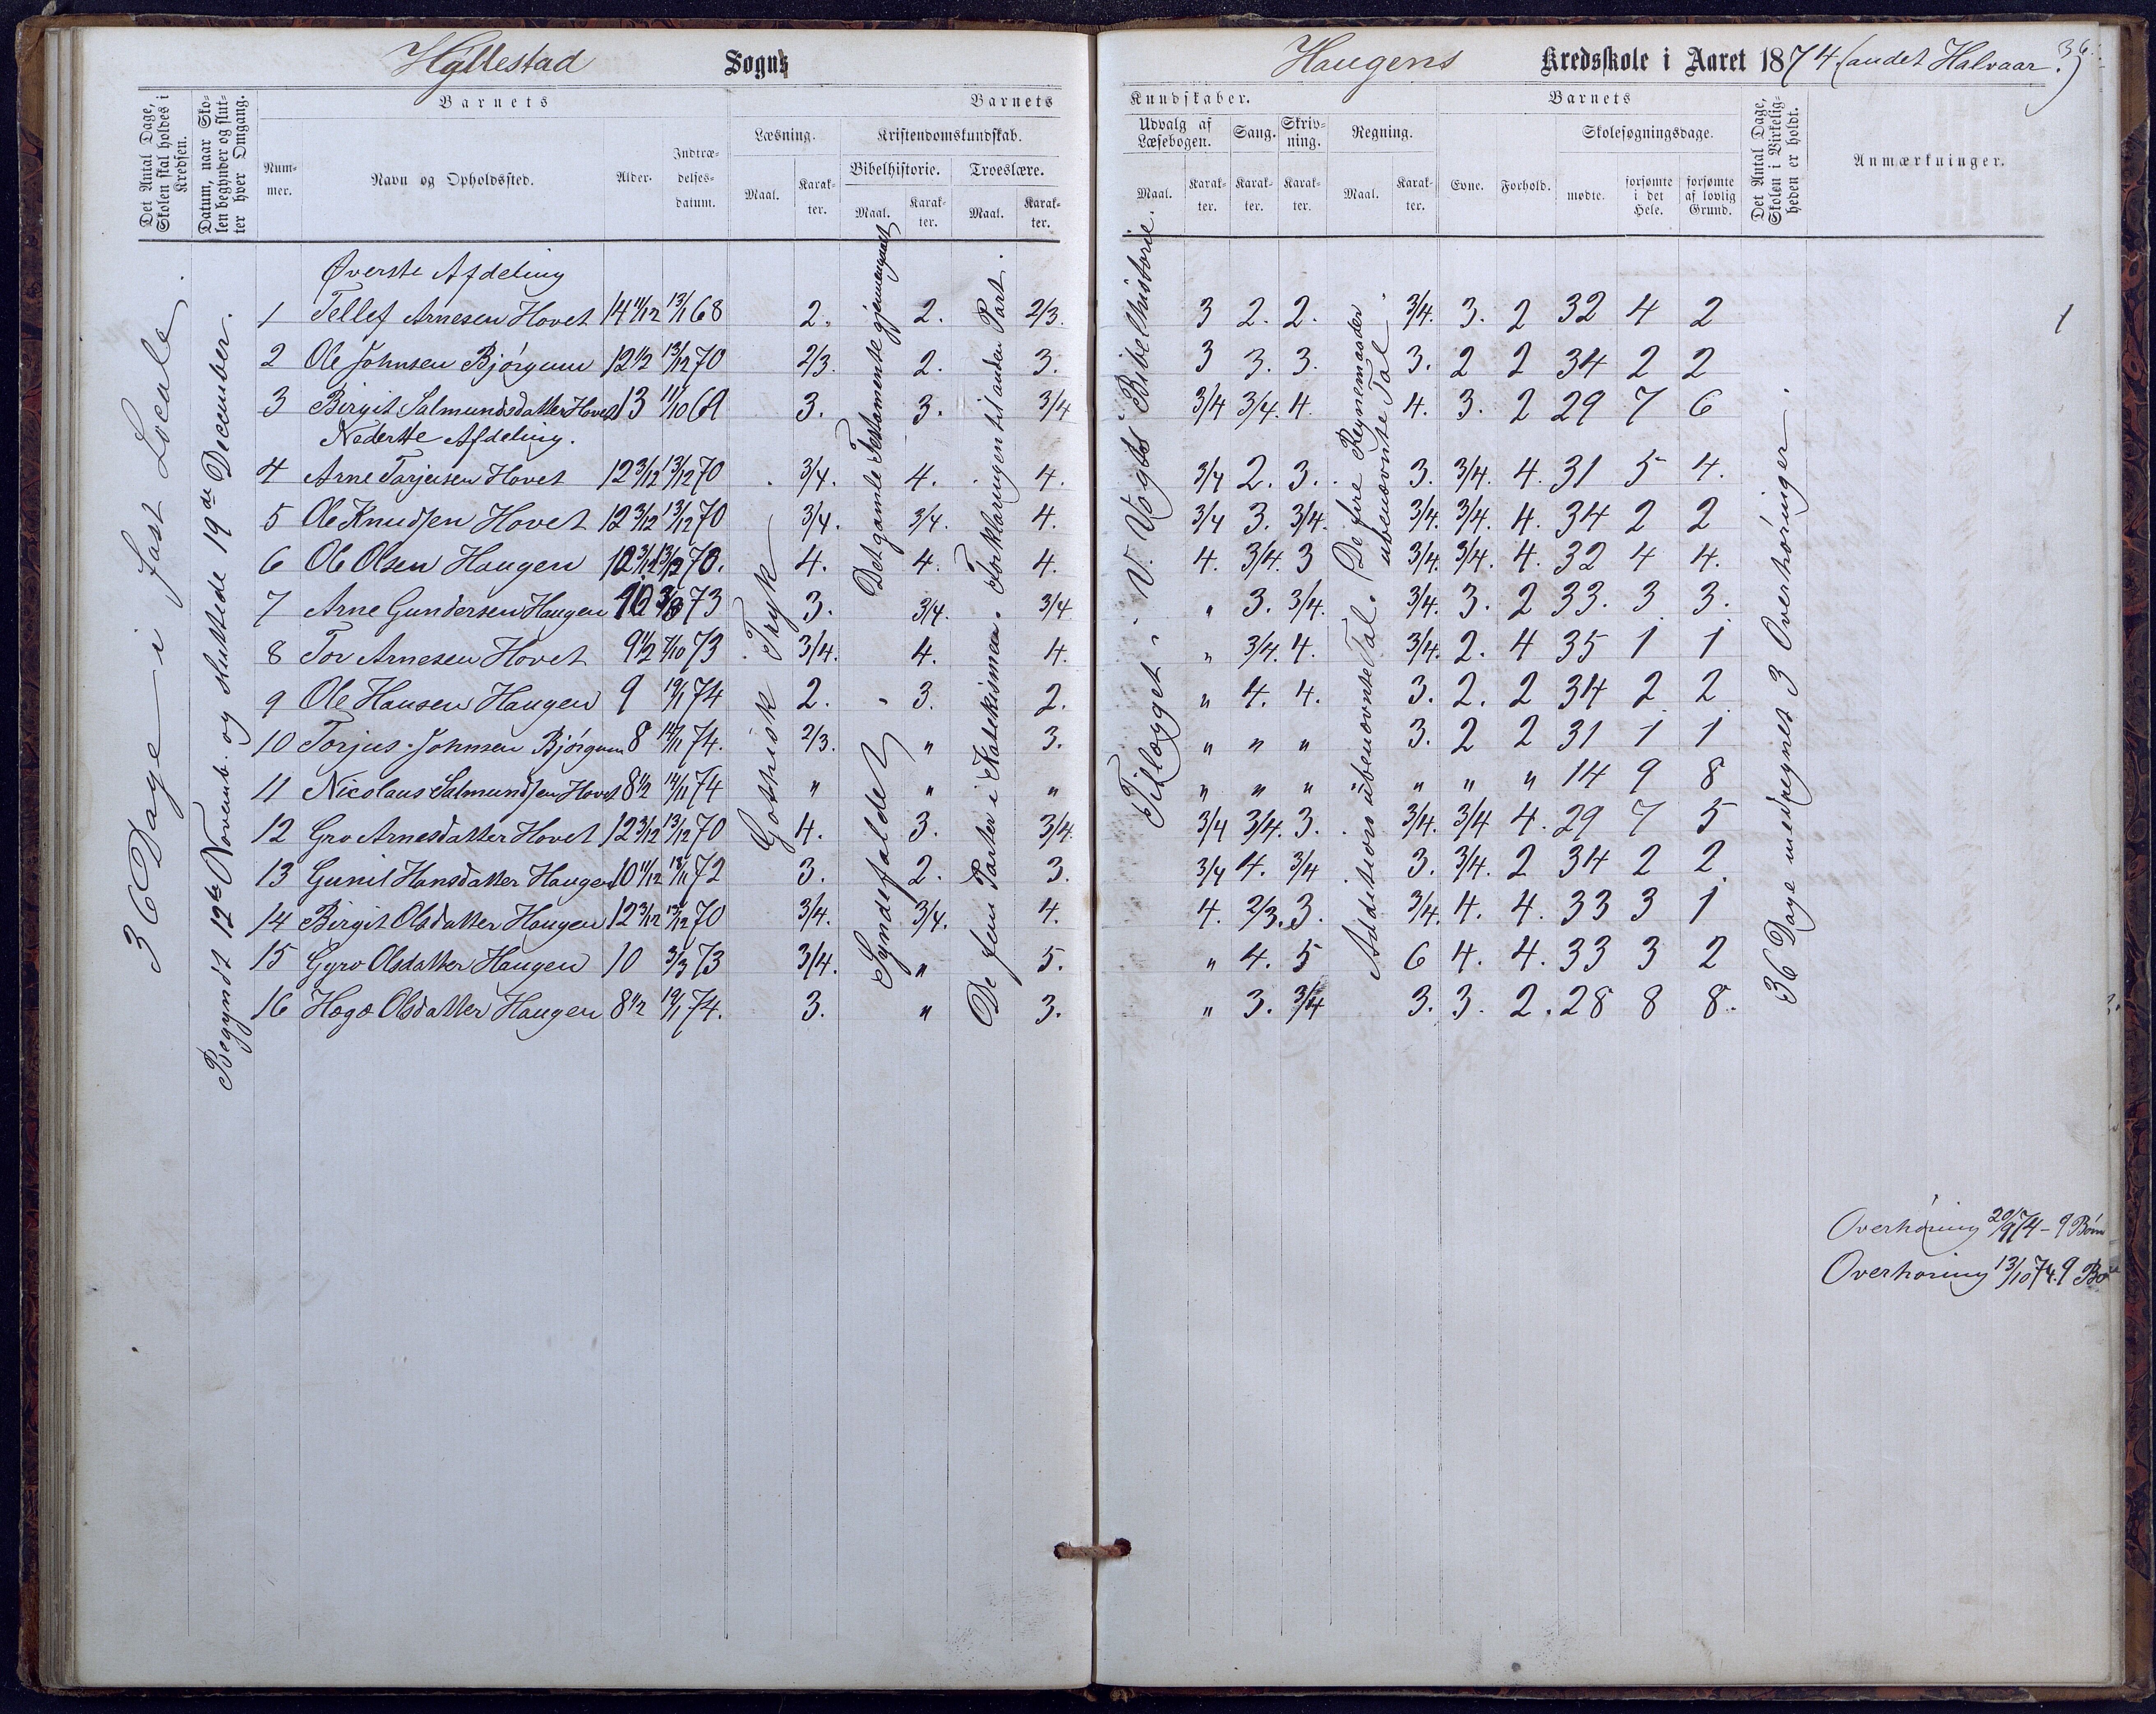 Hyllestad Sogns
Haugens Kredsskole i Aaret 1874 (andet Halvaar.) 36.
Det Antal Dage, Skolen skal holdes i Kredsen.
Datum, naar Skolen begynder og slutter hver Omgang.
Barnets
Nummer.
Navn og Opholdssted.
Alder.
Indtrædelsesdatum.
Barnets
Læsning.
Maal.
Karakter.
Kristendomskundskab.
Bibelhistorie.
Maal.
Karakter.
Troeslære.
Maal.
Karakter.
Kundskaber.
Udvalg af Læsebogen.
Maal.
Karakter.
Sang.
Karakter.
Skrivning.
Karakter.
Regning.
Maal.
Karakter.
Barnets
Evne.
Forhold.
Skolesøgningsdage.
mødte.
forsømte i det Hele.
forsømte af lovlig Grund.
Det Antal Dage, Skolen i Virkeligheden er holdt.
Anmærkninger.
36 Dage i fast Locale.
Begyndt 12te Novemb. og sluttede 19de December.
Gothisk Tryk
Det gamle Testamente gjennemgaaet
Syndefaldet
Forklaringen til anden Part.
De fem Parter i Katekismen.
Tillægget i V. Vogts Bibelhistorie.
De fire Regnemaader i ubenævnte Tal.
Additions ubenævnte Tal.
36 Dage medregnet 3 Overhøringer.
Øverste Afdeling
1 Tellef Arnesen Hovet 14 11/12 13/1 68 2. 2. 2/3. 3 2. 2. 3/4. 3. 2 32 4 2 1
2 Ole Johnsen Bjørgum 12 1/2 13/12 70 2/3. 2. 3. 3 3. 3. 3. 2 2 34 2 2
3 Birgit Salmundsdatter Hovet 13 11/10 69 3. 3. 3/4 3/4 3/4. 4. 4. 3. 2 29 7 6
Nederste Afdeling.
4 Arne Tarjeisen Hovet 12 3/12 13/12 70 3/4. 4. 4. 3/4 2. 3. 3. 3/4. 4. 31 5 4.
5 Ole Knudsen Hovet 12 3/12 13/12 70 3/4. 3/4. 4. 3/4 3. 3/4. 3/4. 3/4. 4. 34 2 2
6 Ole Olsen Haugen 12 3/12 13/12 70. 4. 4. 4. 4. 3/4. 3 3/4. 3/4. 4. 32 4 4.
7 Arne Gundersen Haugen 10 3/3 73 3. 3/4. 3/4 " 3. 3/4. 3/4. 3. 2 33. 3 3.
8 Tor Arnesen Hovet 9 1/2 7/10 73 3/4. 4. 4. " 3/4. 4. 3/4. 2. 4 35 1 1
9 Ole Hansen Haugen 9 19/1 74 2. 3. 2. " 4. 4. 3. 2. 2 34 2 2
10 Torjus Johnsen Bjørgum 8 14/11 74. 2/3. " 3. " " " 3. 2 2 31 1 1
11 Nicolaus Salmundsen Hovet 8 1/2 14/11 74 " " " " " " " " " " 14 9 8
12 Gro Arnesdatter Hovet 12 3/12 13/12 70 4. 3. 3/4. 3/4 3/4. 3. 3/4. 3/4 4. 29 7 5
13 Gunil Hansdatter Haugen 10 11/12 18/11 72 3. 2. 3. 3/4 4. 3/4 3. 3/4. 2 34 2 2.
14 Birgit Olsdatter Haugen 12 3/12 13/12 70 3/4. 3/4. 4. 4. 2/3. 3. 3/4. 4. 4. 33 3 1
15 Gyro Olsdatter Haugen 10 3/3 73 3/4. " 5. " 4. 5 6 4. 4. 33 3 2
16 Hæge Olsdatter Haugen 8 1/2 19/1 74. 3. " 3. " 3. 3/4 3. 3. 2. 28 8 8.
Overhøring 20/9 74 - 9 Børn
Overhøring 13/10 74. 9 Børn